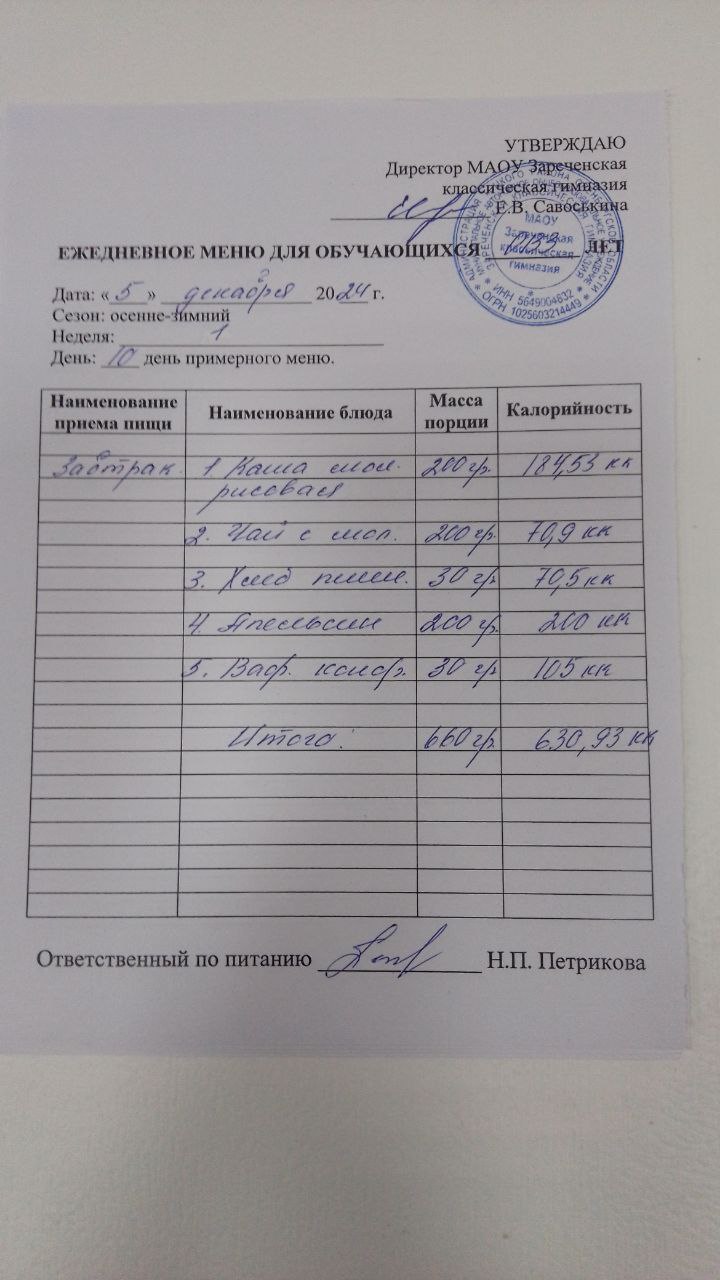 УТВЕРЖДАЮ
Директор МАОУ Зареченская
классическая гимназия
Е.В. Савоськина
ЕЖЕДНЕВНОЕ МЕНЮ ДЛЯ ОБУЧАЮЩИХСЯ ЛЕТ
МАОУ
Зареченская
классическая
гимназия
* ИНН 5649004832 *
* ОГРН 1025603214449 *
Дата: « 5 » декабря 2024 г.
Сезон: осенне-зимний
Неделя: 1
День: 10 день примерного меню.
Наименование приема пищи Наименование блюда Масса порции Калорийность
Завтрак 1. Каша мол. 200 гр. 184,53 кк
рисовая
2. Чай с мол. 200 гр. 70,9 кк
3. Хлеб пшен. 30 гр 70,5 кк
4. Апельсин 200 гр. 200 кк
5. Ваф. конф. 30 гр 105 кк
Итого: 660 гр. 630,93 кк
Ответственный по питанию Н.П. Петрикова